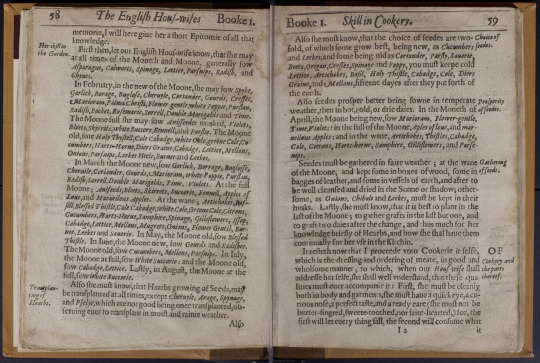 58 The English Hous-wifes Booke 1.
memorie, I will here give her a short Epitomie of all that
knowledge.
Her skill in
the Garden.
First then, let our English Hous-wife know, that she may
at all times of the Moneth and Moone, generally sow
Asparagus, Colworts, Spinage, Lettice, Parsnips, Radish, and
Chyues.
In February, in the new of the Moone, she may sow Spyke,
Garlick, Borage, Buglosse, Cheruyle, Coriander, Gourds, Cresses,
Mariorum, Palma Christi, Flower gentle, white Poppie, Purslan,
Radish, Rocket, Rosemarie, Sorrell, Double Marigolds and Time.
The Moone full she may sow Anisseedes musked, Violets,
Bleets, Skyrrits, Succory, Fennell, and Parslie. The Moone
old, sow Holy Thistell, Cole Cabadge, white Cole, greene Cole, Cu-
cumbers, Harts-Horne, Diers Graine, Cabadge, Lettice, Mellons,
Onions, Parsnips, Larkes Heele, Burnet and Leekes.
In March the Moone new, sow Garlick, Borrage, Buglosse,
Cheruile, Coriander, Gourds, Mariorum, White Poppie, Purslan,
Radish, Sorrell, Double Marigolds, Time, Violets. At the full
Moone, Aniseeds, Bleets, Skirrets, Succorie, Fennell, Apples of
Loue, and Maruailous Apples. At the wane, Artichokes, Bas-
sill, Blessed Thistle, Cole Cabadge, white Cole, Greene Cole, Citrons,
Cucumbers, Harts-Horne, Samphire, Spinage, Gilliflowers, Issop,
Cabadge, Lettice, Mellons, Mugrets, Onions, Flower Gentil, Bur-
net, Leekes and Sauorie. In May, the Moone old, sow Blessed
Thistle. In June, the Moone new, sow Gourds and Radishes.
The Moone old, sow Cucumbers, Mellons, Parsnips. In July,
the Moone at full, sow White Succorie: and the Moone old,
sow Cabadge, Lettice. Lastly, in August, the Moone at the
full, sow White Succorie.
Transplan-
ting of
Hearbs.
Also she must know, that Hearbs growing of Seeds, may
be transplanted at all times, except Cheruyle, Arage, Spynage,
and Pselye, which are not good being once transplanted, ob-
seruing euer to transplant in moist and rainie weather.
Also
Booke 1. Skill in Cookery. 59
Also she must know, that the choice of seedes are two-
fold, of which some grow best, being new, as Cucumbers
and Leekes, and some being old as Coriander, Parsly, Sauorie,
Beets, Origan, Cresses, Spinage and Poppy, you must keepe cold
Lettice, Artichokes, Basil, Holy Thistle, Cabadge, Cole, Diers
Graine, and Mellons, fifteene dayes after they put forth of
the earth.
Choice of
seedes.
Also seedes prosper better being sowne in temperate
weather, then in hot, cold, or drie daies. In the Moneth of
Aprill, the Moone being new, sow Mariorum, Flower-gentle,
Time, Violets: in the full of the Moone, Aples of loue, and mar-
uailous Apples: and in the wane, Artichokes, Thistles, Cabadge,
Cole, Citrons, Harts-horne, Samphire, Gilliflowers, and Parse-
nips.
Prosperity
of seedes.
Seedes must be gathered in faire weather; at the wane
of the Moone, and kept some in boxes of wood, some in
bagges of leather, and some in vessels of earth, and after to
be well clensed and dried in the Sunne or shadow; other-
some, as Onions, Chibols and Leekes, must be kept in their
husks. Lastly, she must know, that it is best to plant in the
last of the Moone; to gather grafts in the last but one, and
to graft two daies after the change, and thus much for her
knowledge briefly of Hearbs, and how she shall haue them
continually for her vse in the Kitchin.
Gathering
of seedes.
It resteth now that I proceede vnto Cookerie it selfe,
which is the dressing and ordering of meate, in good and
wholsome manner; to which, when our Hous-wife shall
addresse her selfe, she shall well vnderstand, that these qua-
lities must euer accompanie it: First, she must be cleanly
both in body and garments, she must haue a quick eye, a cu-
rious nose, a perfect taste, and a ready eare (she must not be
butter-fingred, sweete-toothed, nor faint-hearted,) for, the
first will let euery thing fall, the second will consume what
OF
Cookery and
the parts
thereof.
I 2 it